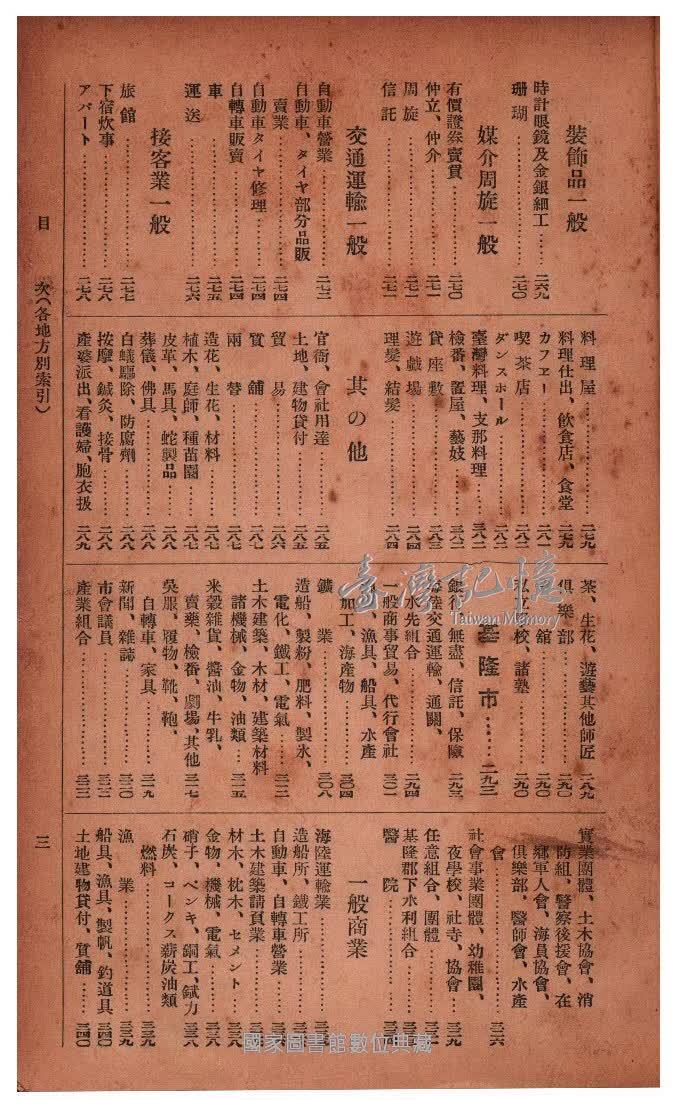 裝飾品一般
時計眼鏡及金銀細工…………二六九
珊瑚…………二七〇
媒介周旋一般
有價證券賣買…………二七〇
仲立、仲介…………二七一
周旋…………二七一
信託…………二七一
交通運輸一般
自動車營業…………二七三
自動車、タイヤ部分品販
賣業…………二七四
自動車タイヤ修理…………二七四
自轉車販賣…………二七四
車…………二七五
運送…………二七六
接客業一般
旅館…………二七七
下宿炊事…………二七八
アパート…………二七八
料理屋…………二七九
料理仕出、飲食店、食堂 二七九
カフヱー…………二八一
喫茶店…………二八二
ダンスホール…………二八二
臺灣料理、支那料理…………二八二
檢番、置屋、藝妓…………二八二
貸座敷…………二八三
遊戲場…………二八四
理髮、結髮…………二八四
其の他
官衙、會社用達…………二八五
土地、建物貸付…………二八五
貿易…………二八六
質舖…………二八七
兩替…………二八七
造花、生花、材料…………二八七
植木、庭師、種苗園…………二八七
皮革、馬具、蛇製品…………二八八
葬儀、佛具…………二八八
白蟻驅除、防腐劑…………二八八
按摩、鍼灸、接骨…………二八八
產婆派出、看護婦、胞衣扱 二八九
茶、生花、遊藝其他師匠 二八九
俱樂部…………二九〇
館…………二九〇
私立學校、諸塾…………二九〇
基隆市……二九三
銀行、無盡、信託、保險 二九三
海陸交通運輸、通關、
水先組合…………二九四
一般商事貿易、代行會社 三〇一
漁具、船具、水產
加工、海產物…………三〇四
鑛業…………三〇八
造船、製粉、肥料、製氷、
電化、鐵工、電氣…………三一二
土木建築、木材、建築材料
諸機械、金物、油類…………三一五
米穀雜貨、醬油、牛乳、
賣藥、檢番、劇場、其他 三一七
吳服、履物、靴、鞄、
自轉車、家具…………三一九
新聞、雜誌…………三二〇
市會議員…………三二二
產業組合…………三二二
實業團體、土木協會、消
防組、警察後援會、在
鄉軍人會、海員協會、
俱樂部、醫師會、水產
會…………三二六
社會事業團體、幼稚園、
夜學校、社寺、協會…………三二九
任意組合、團體
基隆郡下水利組合
醫院
一般商業
海陸運輸業
造船所、鐵工所
自動車、自轉車營業
土木建築請負業
材木、枕木、セメント
金物、機械、電氣…………三三八
硝子、ペンキ、銅工、錻力 三三八
石炭、コークス薪炭油類
燃料…………三三九
漁業…………三三九
船具、漁具、製帆、釣道具 三四〇
土地建物貸付、質舖…………三四〇
目　次（各地方別索引）
三
臺灣記憶
Taiwan Memory
國家圖書館數位典藏